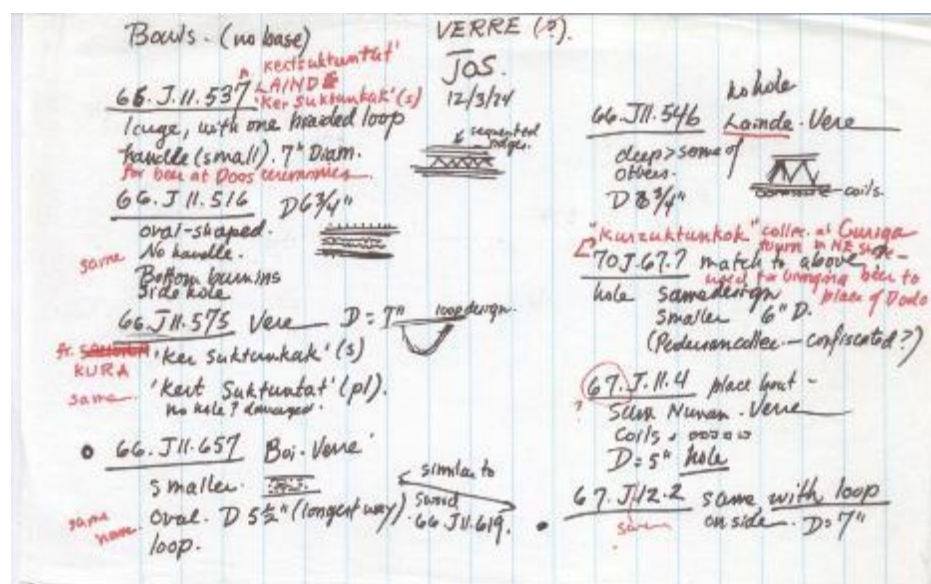 Bowls. (no base)
VERRE (?).
JOS.
12/3/74
'Kertsuktuntat'
LAINDE
'Ker Suktunkak' (s)
66.J.11.537
large, with one braided loop
handle (small). 7" Diam.
For beer at Doos ceremonies.
segmented
ridges.
66.J11.516 D6 3/4"
oval-shaped.
same No handle.
Bottom burnins
Side hole
66.J11.575 Vere D=7" loop design.
fr.
KURA
'Ker Suktunkak' (s)
same 'Kert Suktuntat' (pl).
no hole? damaged.
66.J11.657 Boi-Verre
smaller.
same name
oval. D 5 1/2" (longest way)
loop.
similar to
66 J11.619.
no hole
66.J11.546 Lainde-Vere
deep > some of
others.
D 8 3/4"
coils.
"Kurzuktunkok" collec. at Guriga
town in NE State
70J.67.7 match to above
used for bringing beer to
place of Dodo
hole same design
smaller 6" D.
(Pedersen collec — confiscated?)
67.J.11.4 place bout -
? Numan. Verre
Coils.
D=5" hole
67.J12.2 same with loop
same on side. D=7"